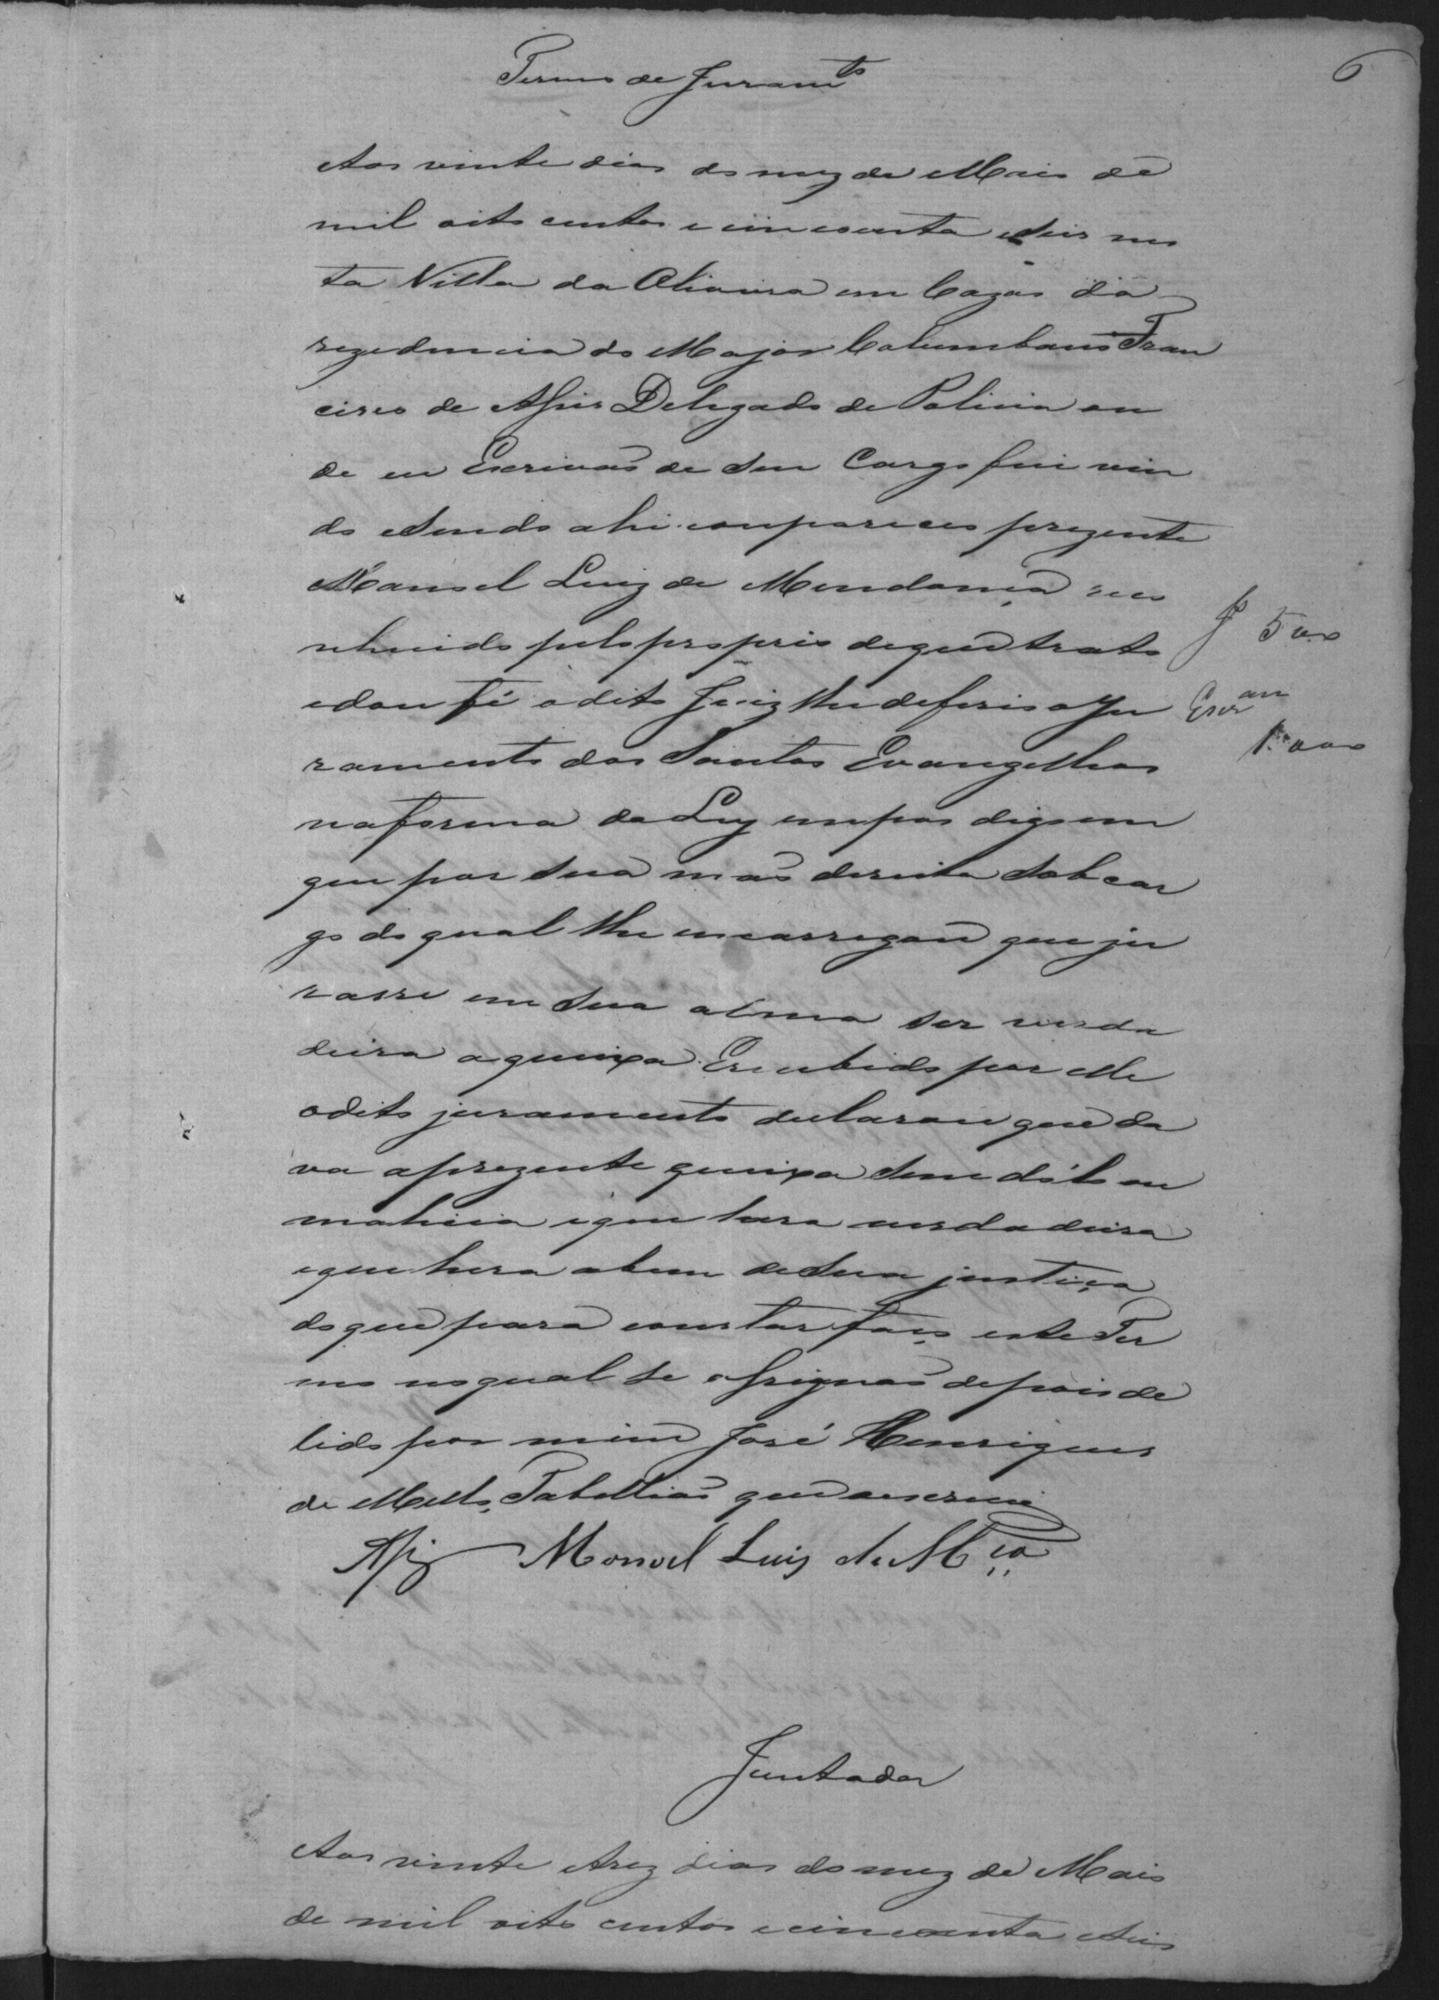 6
Termo de Juram.to
Aos vinte dias do mez de Maio de
mil oito centos e cincoenta e seis nes
ta Villa da Oliveira em Cazas da
rezedencia do Major Columbano Fran
cisco de Assis Delegado de Policia on
de eu Escrivão de seu Cargo fui vin
do e sendo ahi compareceo prezente
Manoel Luiz de Mendonça reco
nhecido pelo proprio de que trato
J.º 500
e dou fé o dito Juiz lhe deferio o Ju
Escr.am
ramento dos Santos Evangelhos
1:000
na forma da Ley em pos digo em
que pos sua mão direita sob car
go do qual lhe encarregou que ju
rasse em sua alma ser verda
deira a queixa Erecebido por elle
o dito juramento declarou que da
va a prezente queixa sem dólo ou
malicia e que hera verdadeira
e que hera a bem de sua justiça
do que para constar faço este Ter
mo no qual se assignão depois de
lido por mim José Henriques
de Mello Tabellião que o escrevi
Assis Manoel Luis de M.ça
Juntada
Aos vinte e trez dias do mez de Maio
de mil oito centos e cincoenta e seis